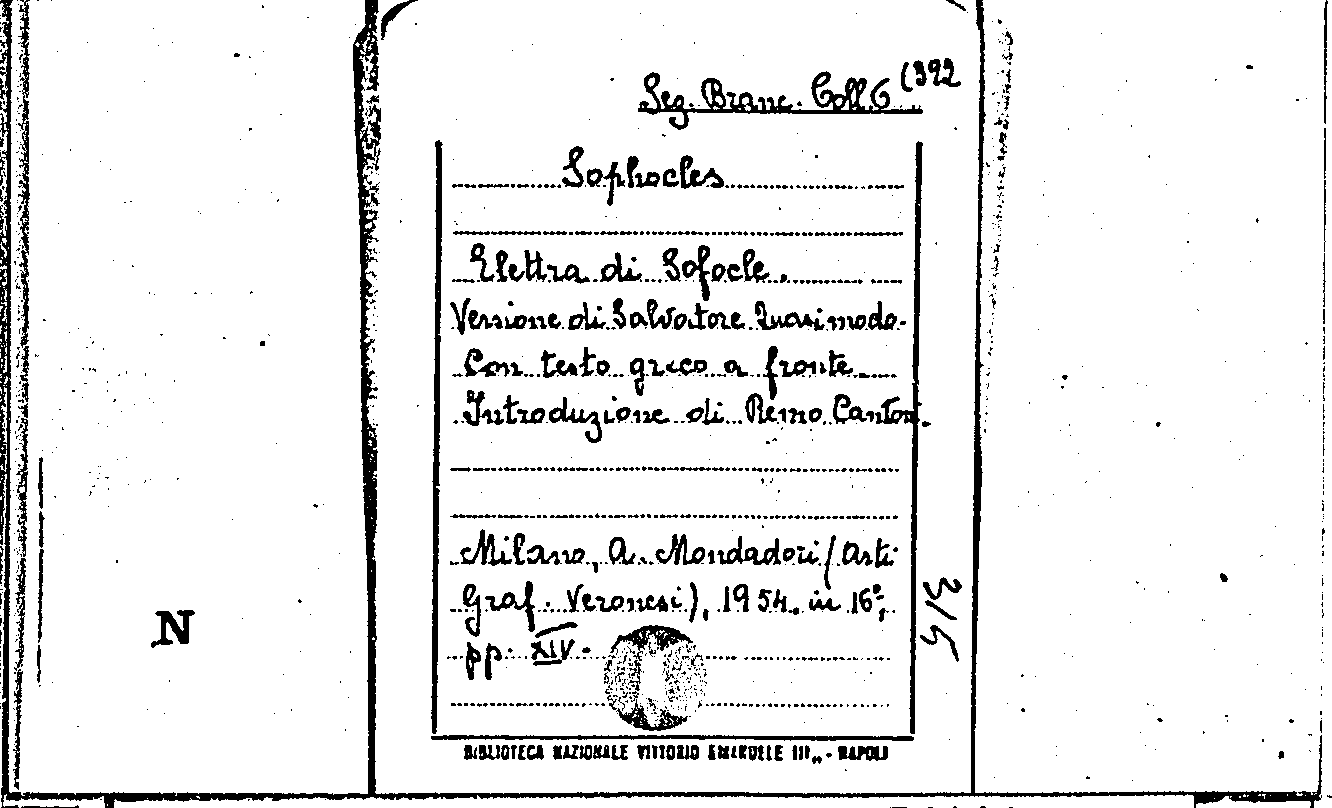 Sez. Branc. Coll. G (392
Sophocles
Elettra di Sofocle.
Versione di Salvatore Quasimodo.
Con testo greco a fronte.
Introduzione di Remo Cantoni.
Milano, A. Mondadori (Arti
Graf. Veronesi), 1954. in 16º,
pp. XIV.
316
N
BIBLIOTECA NAZIONALE VITTORIO EMANUELE III„ - NAPOLI